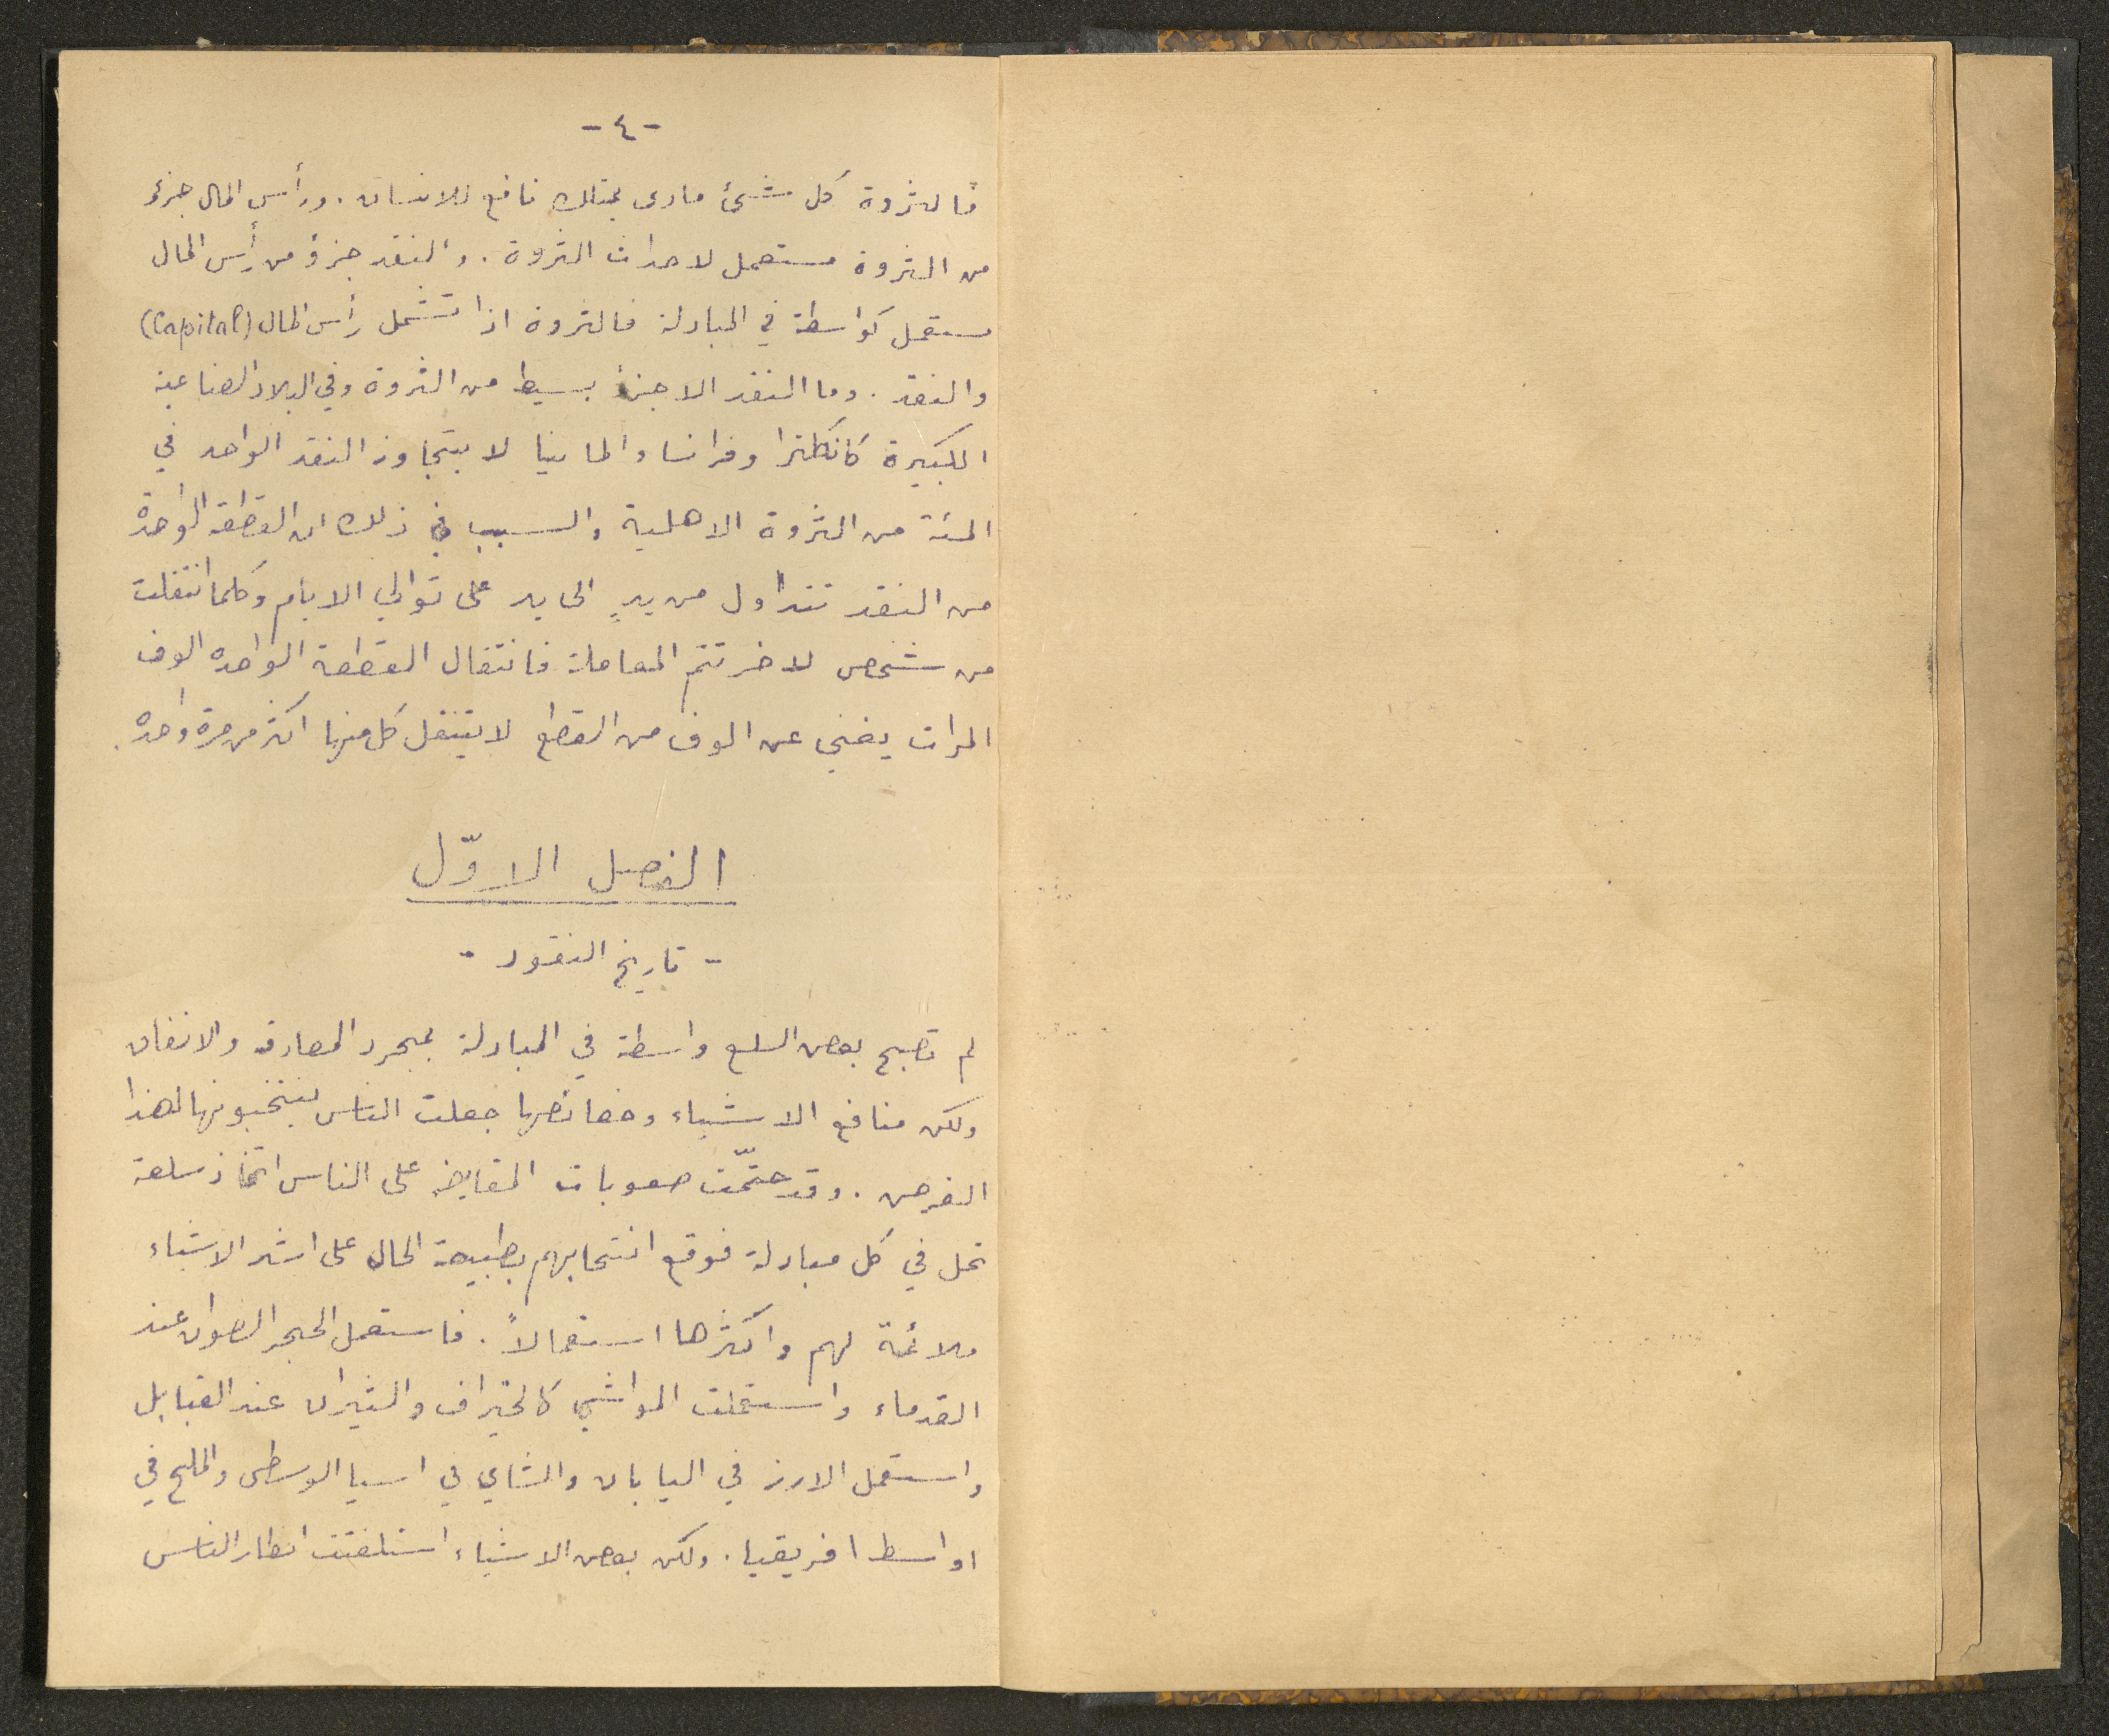 -٤-
فالثروة كل شئ مادى يمتلك نافع للانسان. ورأس المال جزؤ
من الثروة مستعمل لاحداث الثروة. والنقد جزؤ من رأس المال
مستعمل كواسطة في المبادلة فالثروة اذا تشمل رأس المال (Capital)
والنقد. وما النقد الا جزؤ بسيط من الثروة وفي البلاد الصناعية
الكبيرة كانكلترا وفرانسا والمانيا لا يتجاوز النقد الواحد في
المئة من الثروة الاهلية والسبب في ذلك ان القطعة الواحدة
من النقد تتداول من يدٍ الى يد على توالي الايام وكلما انتقلت
من شخص لاخر تتم المعاملة فانتقال القطعة الواحده الوف
المرات يغني عن الوف من القطع لا يتنقل كل منها اكثر من مرة واحده.
الفصل الاوّل
- تاريخ النقود -
لم تصبح بعض السلع واسطة في المبادلة بمجرد المصادفه والاتفاق
ولكن منافع الاشياء وخصائصها جعلت الناس ينتخبونها لهذا
الغرض. وقد حتمّت صعوبات المقايضه على الناس اتخاذ سلعة
تحل في كل مبادلة فوقع انتخابهم بطبيعة الحال على اشد الاشياء
ملائمة لهم واكثرها استعمالاً. فاستعمل الحجر الصوان عند
القدماء واستعملت المواشي كالخراف والثيران عند القبايل
واستعمل الارز في اليابان والشاي في اسيا الوسطى والملح في
اواسط افريقيا. ولكن بعض الاشياء استلفتت انظار الناس